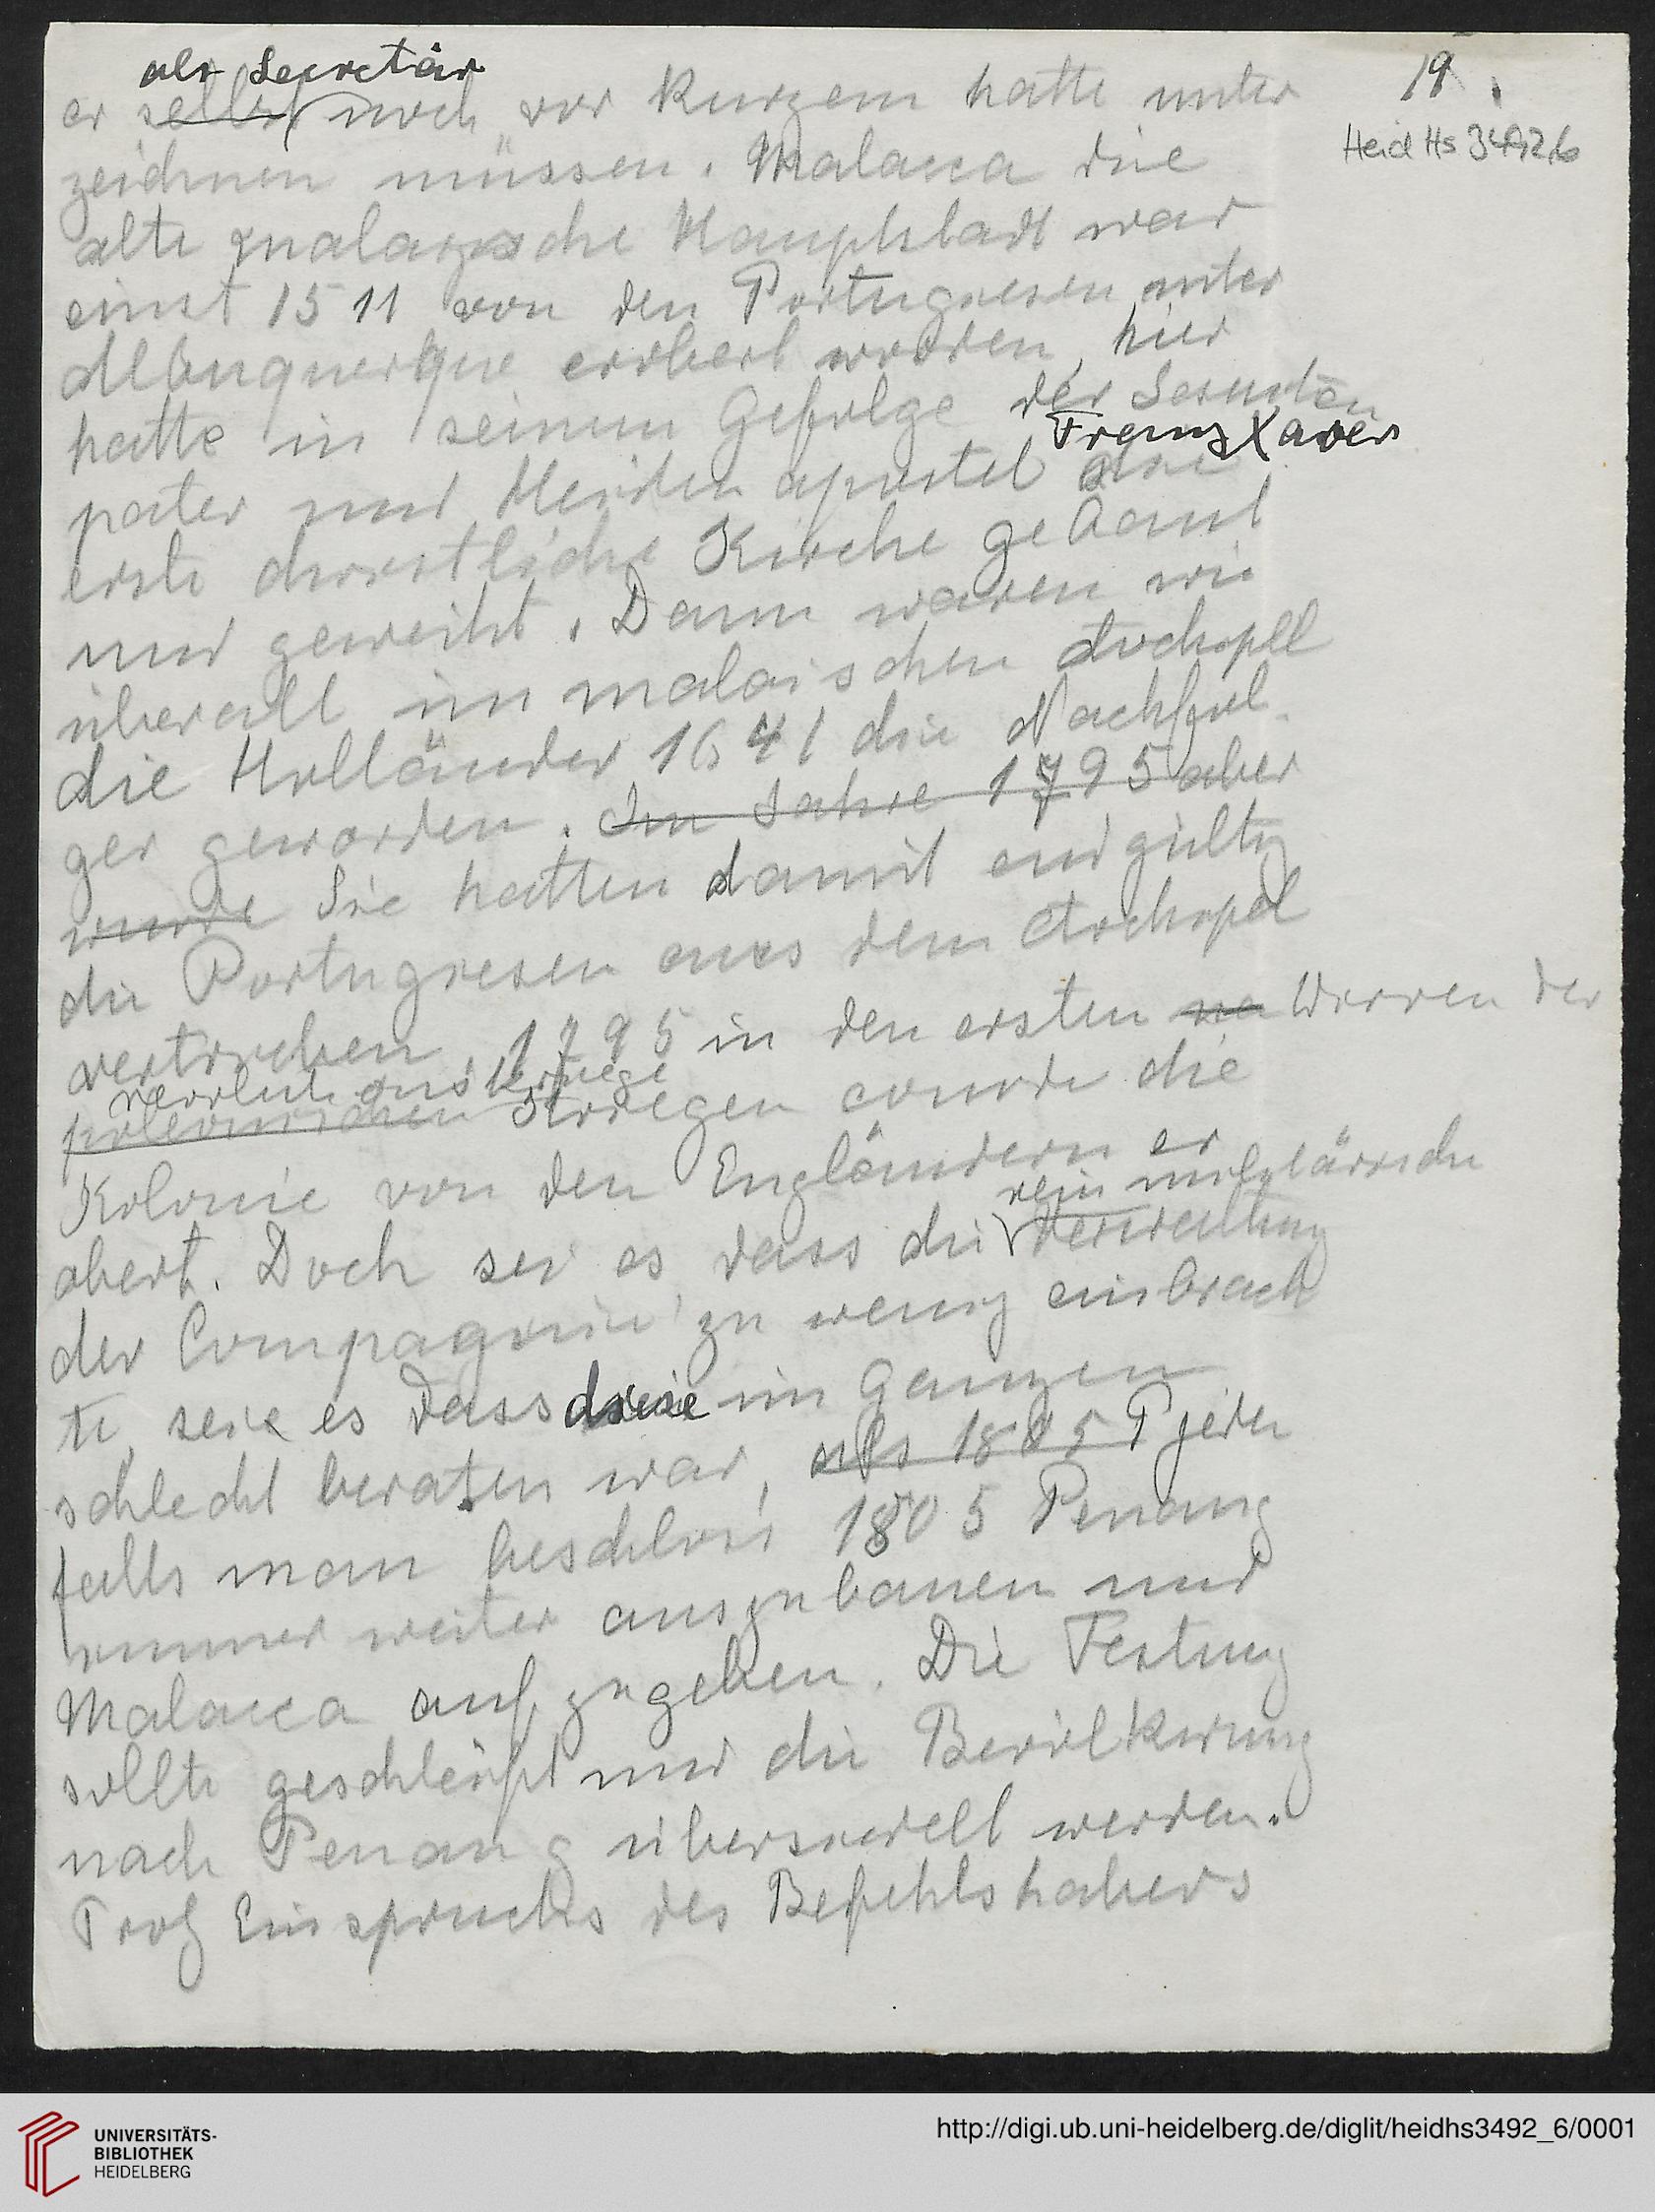 19.
Heid Hs 3492,6
als Secretär
er selbst noch vor kurzem hatte unter
zeichnen müssen. Malacca die
alte malayische Hauptstadt war
einst 1511 von den Portugiesen unter
Albuquerque erobert worden, hier
hatte in seinem Gefolge der Jesuiten
Franz Xaver
pater und Heiden apostel die
erste christliche Kirche gebaut
und geweiht. Dann waren wie
überall im malaischen Archipell
die Holländer 1641 die Nachfol
ger geworden. Im Jahre 1795 aber
wurde Sie hatten damit endgültig
die Portugiesen aus dem Archipel
vertrieben. 1795 in den ersten na Wirren der
revolutionskriege
poleonischen Kriegen wurde die
Kolonie von den Engländern er
rein militärische
obert. Doch sei es dass die Verwaltung
der Compagnie zu wenig einbrach
te, seie es dass diese im Ganzen
schlecht beraten war, als 1805 jeden
falls man beschloss 1805 Penang
immer weiter auszubauen und
Malacca aufzugeben. Die Festung
sollte geschleift und die Bevölkerung
nach Penang übersiedelt werden.
Trotz Einspruchs des Befehlshabers
UNIVERSITÄTS-
BIBLIOTHEK
HEIDELBERG
http://digi.ub.uni-heidelberg.de/diglit/heidhs3492_6/0001